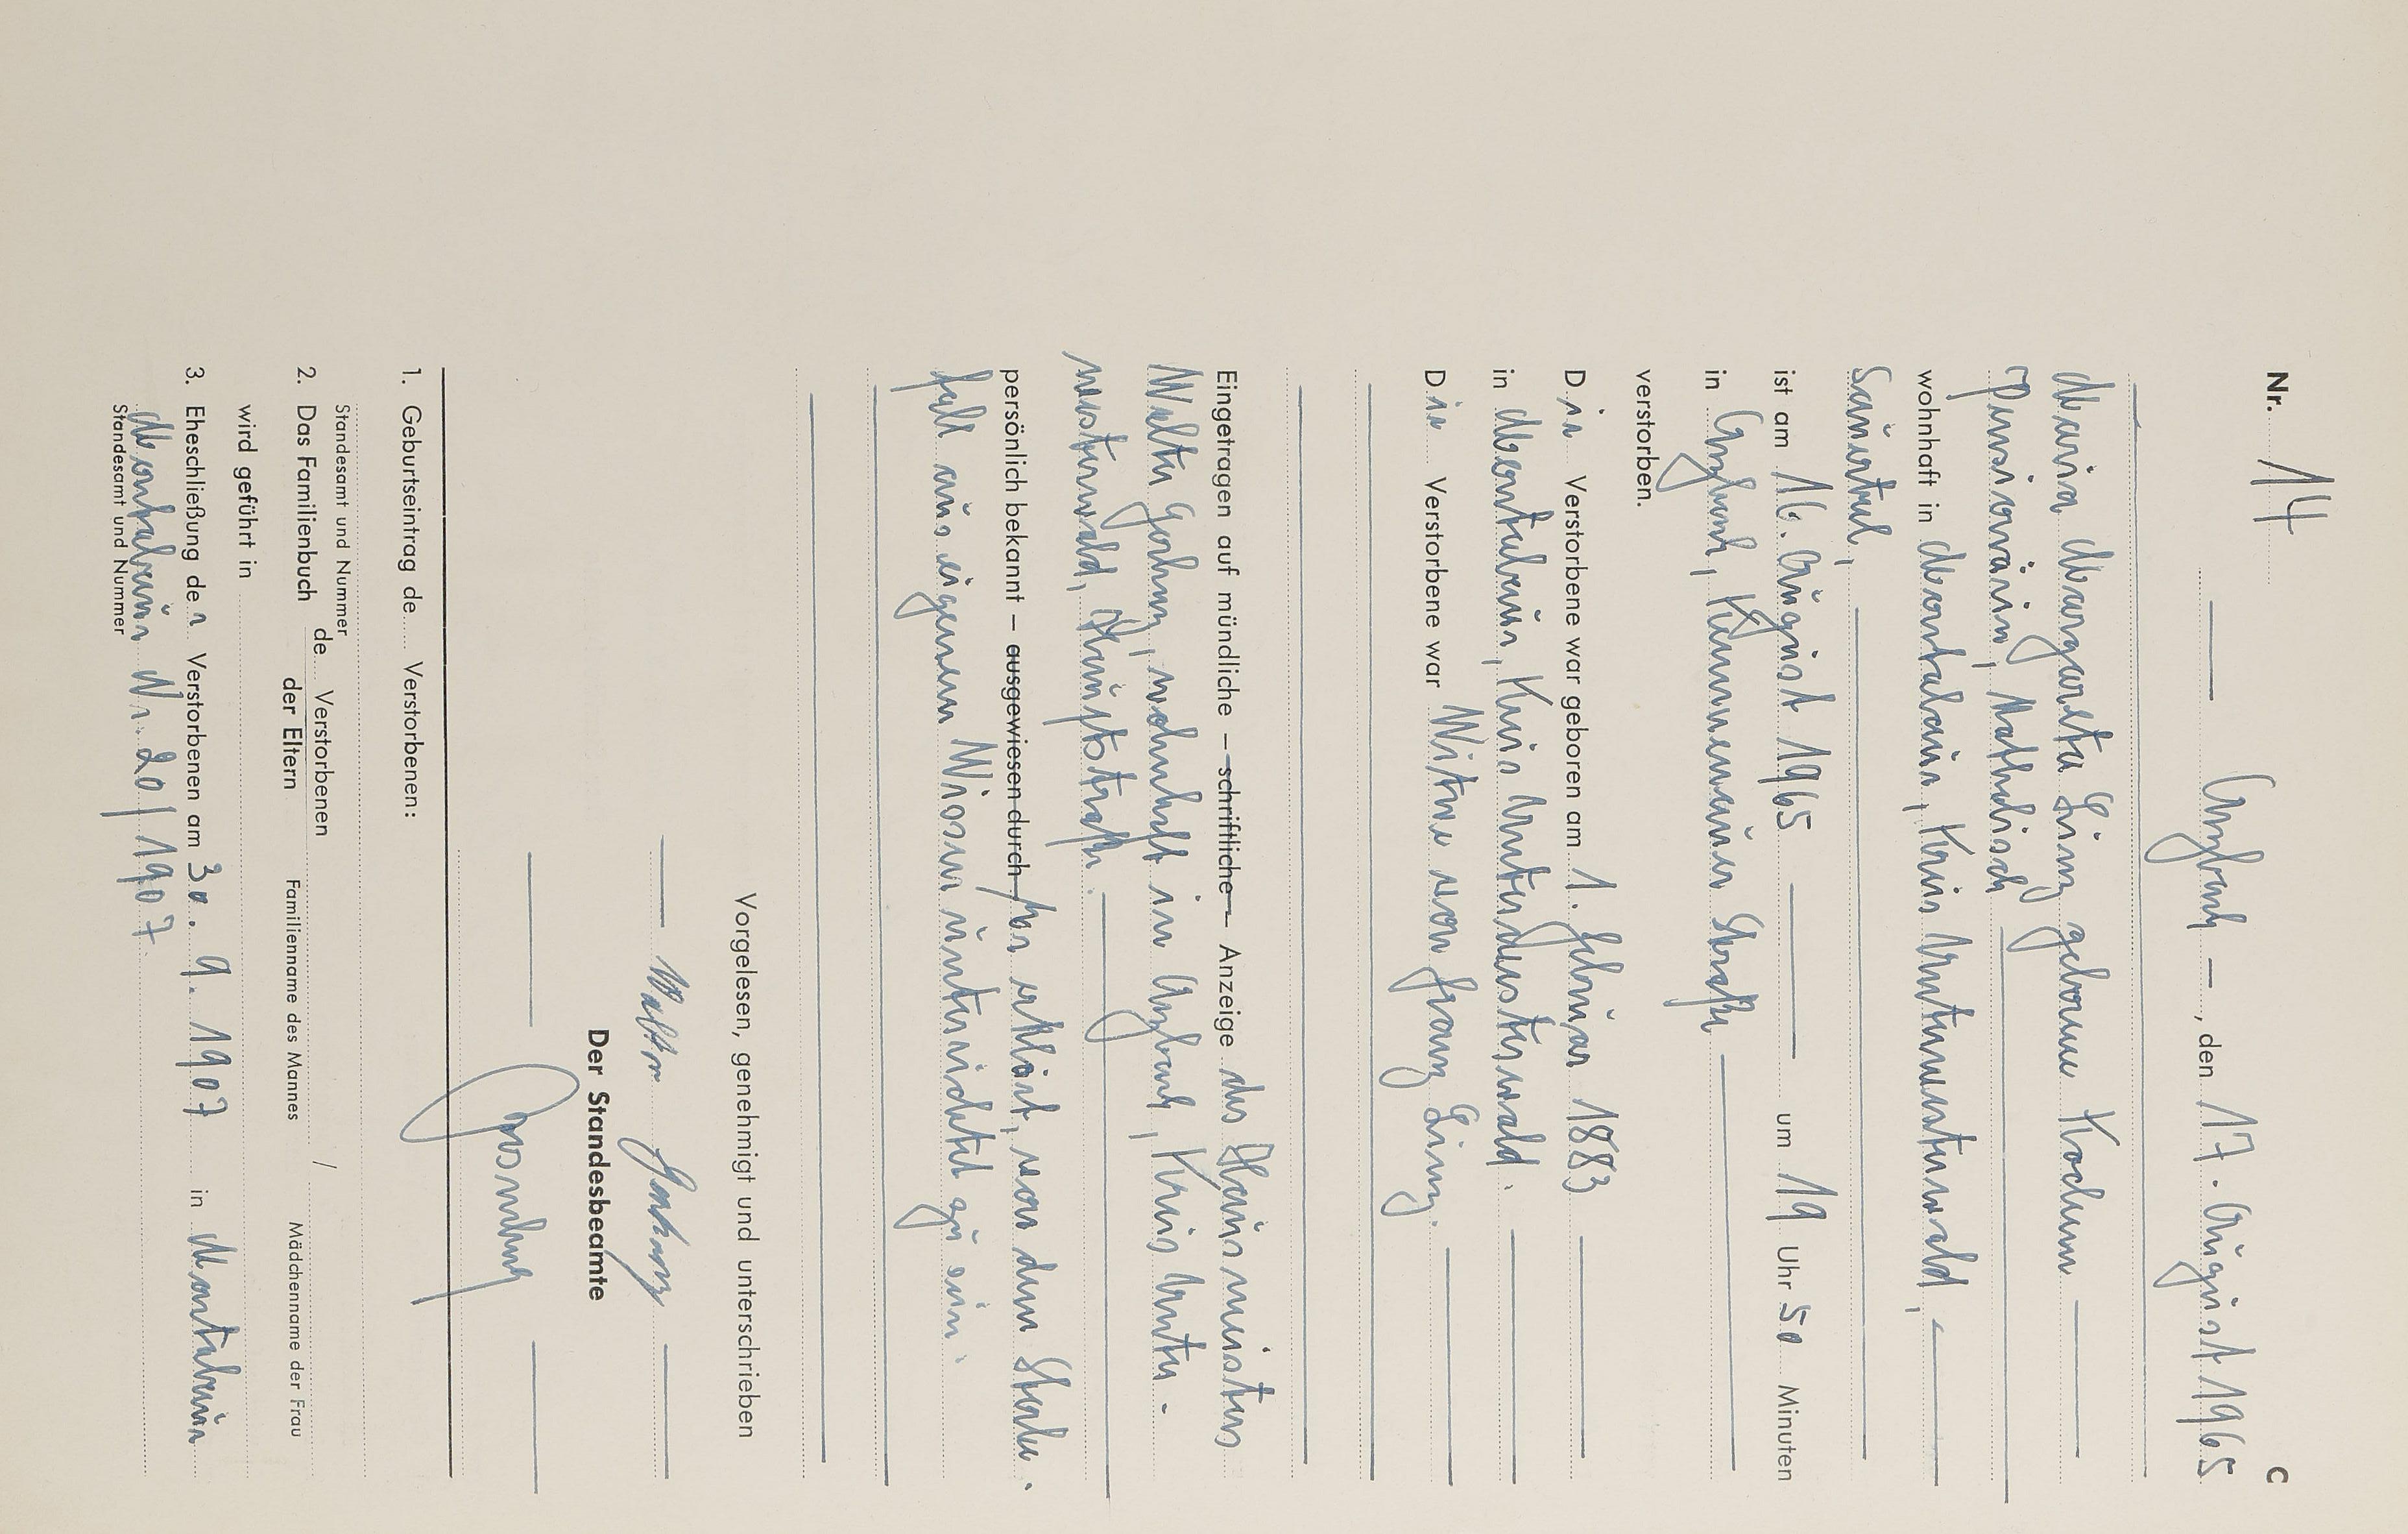 Nr. 14
C
Arzbach –, den 17. August 1965
Maria Margareta Linz geborene Kochem
Pensionärin, katholisch
wohnhaft in Montabaur, Kreis Unterwesterwald,
Sauertal,
ist am 16. August 1965 um 19 Uhr 50 Minuten
in Arzbach, Kemmenauer Straße
verstorben.
Die Verstorbene war geboren am 1. Februar 1883
in Montabaur, Kreis Unterwesterwald.
Die Verstorbene war Witwe von Franz Linz.
Eingetragen auf mündliche – schriftliche – Anzeige des Hausmeisters
Walter, wohnhaft in Arzbach, Kreis Unter-
westerwald, Hauptstraße.
persönlich bekannt – ausgewiesen durch – Er erklärt, von dem Sterbe-
fall aus eigenem Wissen unterrichtet zu sein.
Vorgelesen, genehmigt und unterschrieben
Walter
Der Standesbeamte
1. Geburtseintrag de Verstorbenen:
Standesamt und Nummer
2. Das Familienbuch de Verstorbenen
der Eltern
Familienname des Mannes / Mädchenname der Frau
wird geführt in
3. Eheschließung der Verstorbenen am 30. 9. 1907 in Montabaur
Montabaur Nr. 20/1907
Standesamt und Nummer